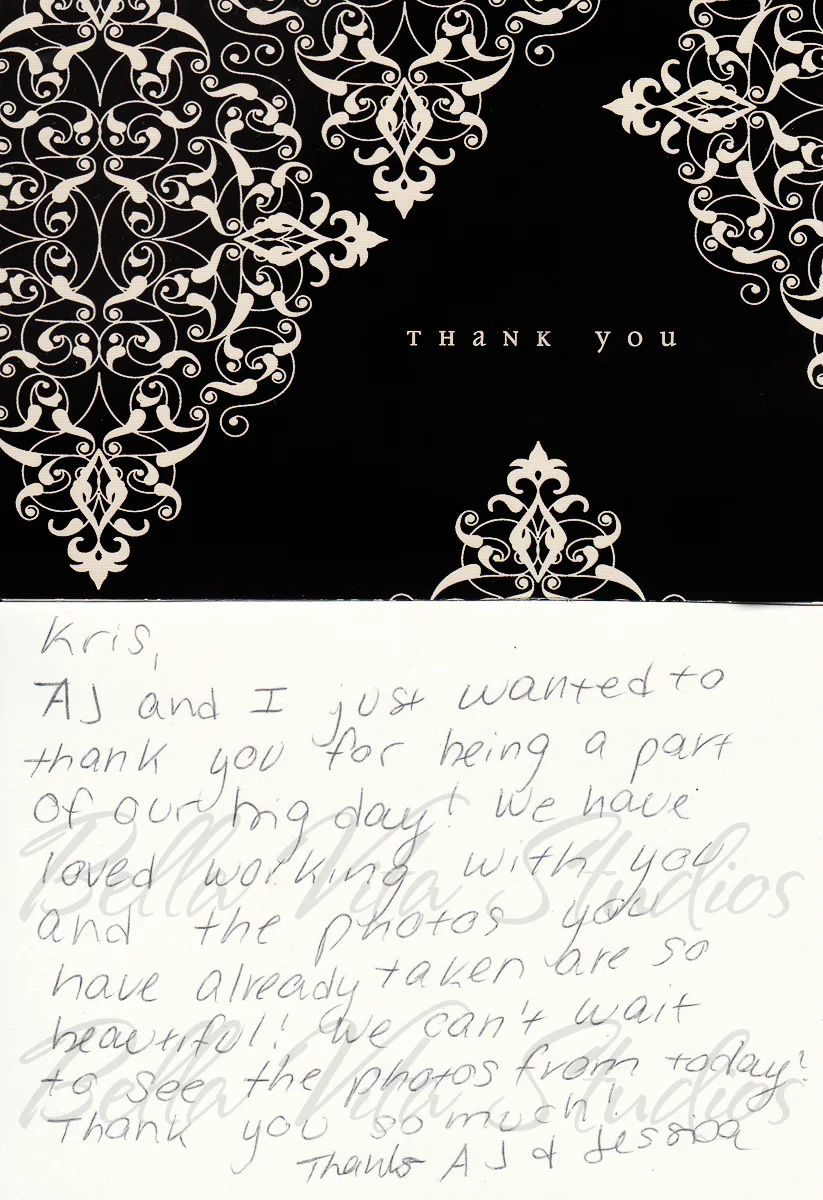 THaNK you
Kris,
AJ and I just wanted to
thank you for being a part
of our big day! We have
loved working with you
and the photos you
have already taken are so
beautiful! We can't wait
to see the photos from today!
Thank you so much!
Thanks AJ & Jessica
Bella Vita Studios
Bella Vita Studios